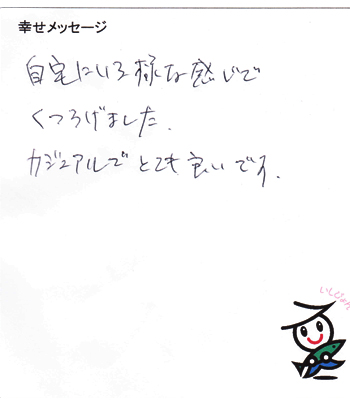 幸せメッセージ
自宅にいる様な感じで
くつろげました.
カジュアルでとても良いです.
いしぴょん